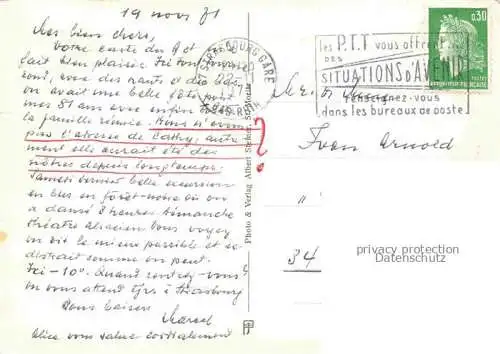 19 nov 71
Mes bien chers,
Votre carte du 9 et nous
fait bien plaisir. Ici tout
avec des hauts et des bas
on avait une belle fête pour
mes 81 ans enfin toute
la famille réunie. Nous n'avons
pas l'adresse de Cathy, autre-
ment elle aurait été des
nôtres depuis longtemps.
Samedi dernier belle excursion
en bus en forêt-noire où on
a dansé 2 heures, dimanche
théâtre alsacien. Vous voyez
on vit le mieux possible et se
distrait comme on peut.
Ici - 10°. Quand rentrez-vous?
On vous attend à Strasbourg
Bons baisers
Marcel
Alice vous salue cordialement
?
Photo & Verlag Albert Steiner, St. Moritz
67 STRASBOURG GARE
BAS-RHIN
les P.T.T vous offrent
DES
SITUATIONS D'AVENIR
renseignez-vous
dans les bureaux de poste
0,30
Mr et
Yvan Arnold
"
34
privacy protection
AnsichtskartenVersand.com